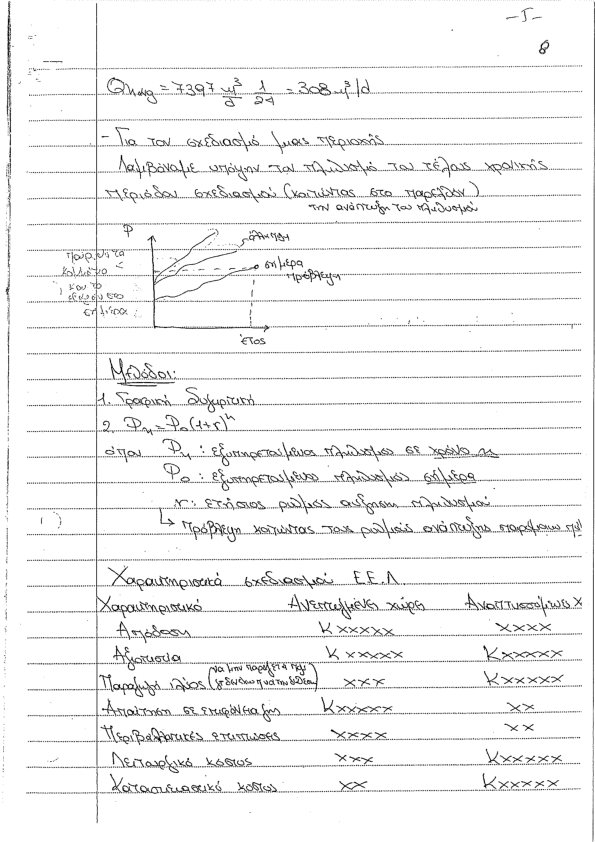 -I-
8
Qhavg = 7397 m³/d 1/24 = 308 m³/d
- Για τον σχεδιασμό μιας περιοχής
Λαμβάνουμε υπόψην τον πληθυσμό του τέλους χρονικής
περιόδου σχεδιασμού (κοιτώντας στο παρελθόν)
την ανάπτυξη του πληθυσμού
P
σήμερα
πρόβλεψη
έτος
Μέθοδοι:
1. Γραφική Συγκριτική
2. Pn = P0 (1+r)^n
όπου Pn : εξυπηρετούμενος πληθυσμός σε χρόνο n
P0 : εξυπηρετούμενος πληθυσμός σήμερα
r : ετήσιος ρυθμός αύξηση πληθυσμού
↳ πρόβλεψη κοιτώντας τους ρυθμούς ανάπτυξης παρόμοιων
Χαρακτηριστικά σχεδιασμού Ε.Ε.Λ.
Χαρακτηριστικό Ανεπτυγμένες χώρες Αναπτυσσόμενες Χ
Απόδοση Κ x x x x x x x x x
Αξιοπιστία Κ x x x x x Κ x x x x x
Παραγωγή ιλύος x x x Κ x x x x x
Απαίτηση σε επιφάνεια γης Κ x x x x x x x
Περιβαλλοντικές επιπτώσεις x x x x x x
Λειτουργικό κόστος x x x Κ x x x x x
Κατασκευαστικό κόστος x x Κ x x x x x